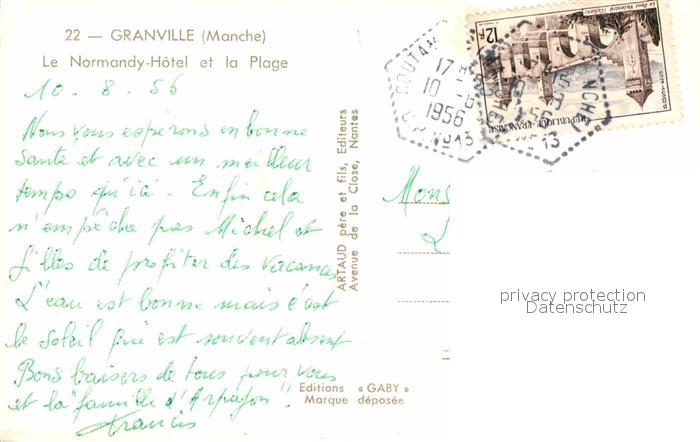 22 — GRANVILLE (Manche)
Le Normandy-Hôtel et la Plage
10.8.56
Nous vous espérons en bonne
santé et avec un meilleur
temps qu'ici. Enfin cela
n'empêche pas Michel et
filles de profiter des vacances
L'eau est bonne mais c'est
le soleil qui est souvent absent
Bons baisers de tous pour vous
et la "famille d'Arpajon".
Francis
ARTAUD père et fils, Editeurs
Avenue de la Close, Nantes
Editions « GABY »
Marque déposée
Mons
12F
Le Pont Valentré (Cahors)
REPUBLIQUE FRANÇAISE
POSTES
COUTAN
17 H
10 - 8
1956
C.P. N°13
privacy protection
Datenschutz